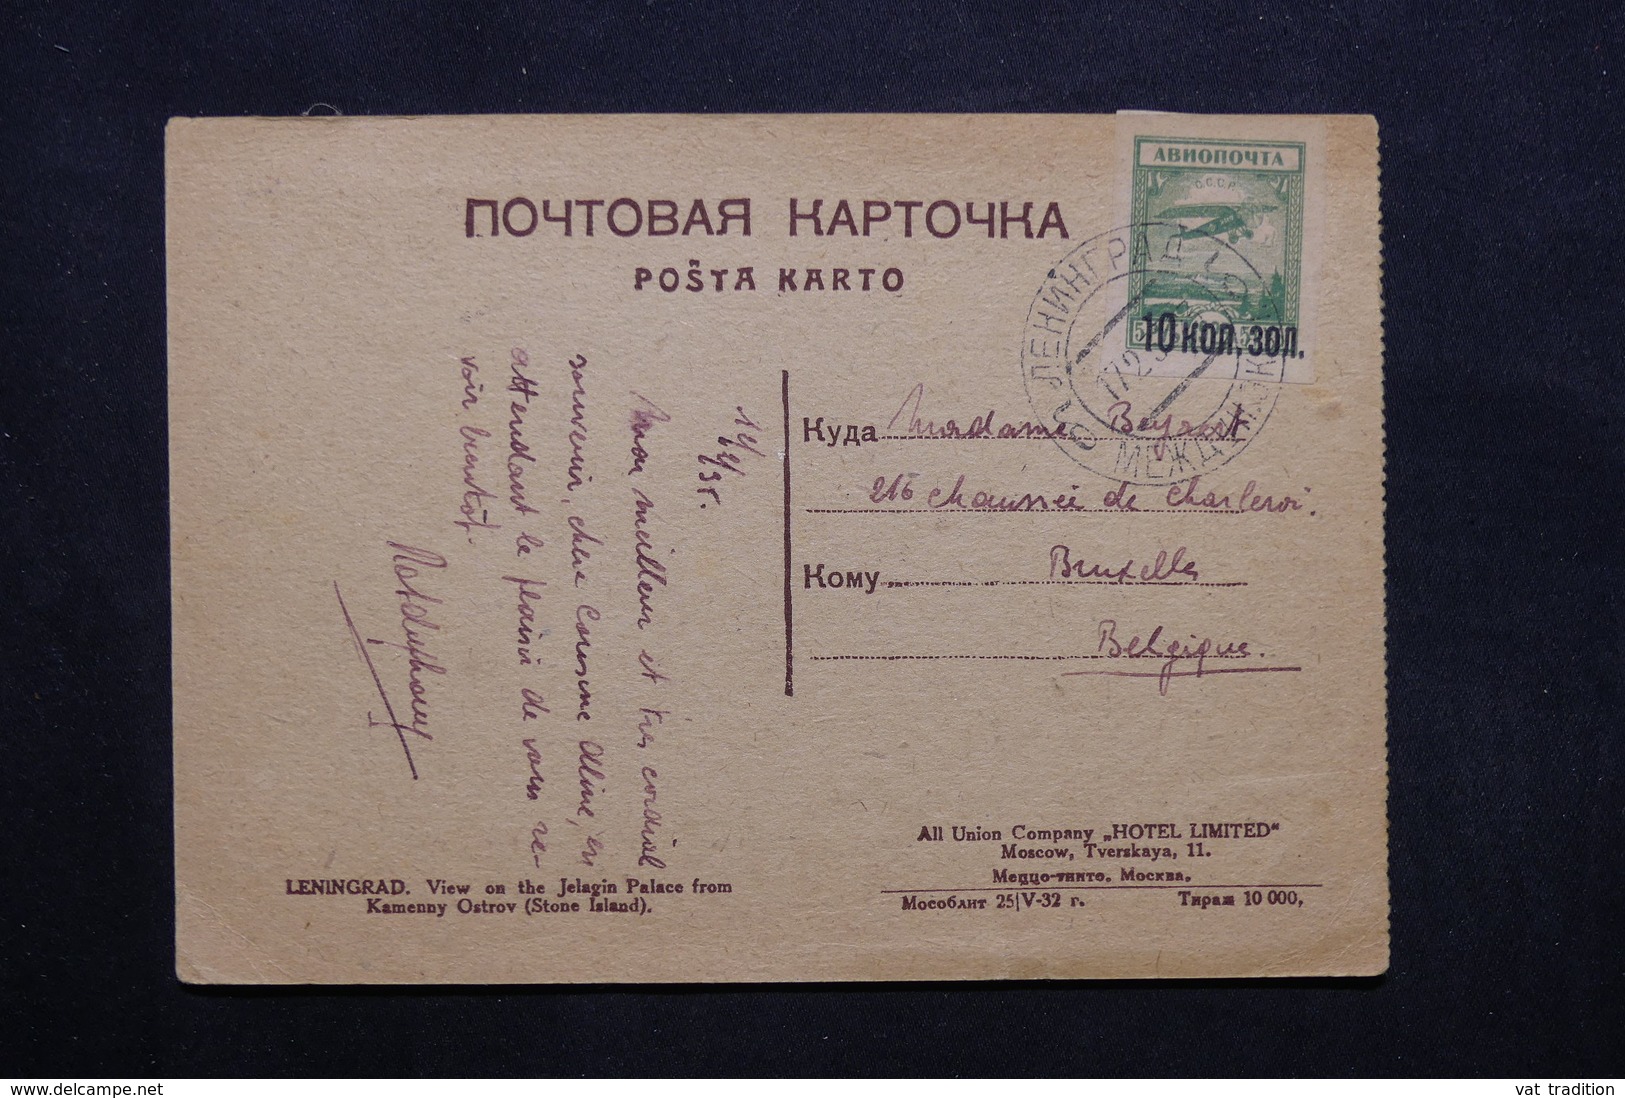 АВИОПОЧТА
С.С.С.Р.
10 КОП. ЗОЛ.
ЛЕНИНГРАД
МЕЖДУН
ПОЧТОВАЯ КАРТОЧКА
POŜTA KARTO
Mon meilleur et très cordial
souvenir, chère Cousine Aline, en
attendant le plaisir de vous re-
voir bientôt.
Куда Madame
216 chaussée de Charleroi.
Кому Bruxelles
Belgique.
LENINGRAD. View on the Jelagin Palace from
Kamenny Ostrov (Stone Island).
All Union Company „HOTEL LIMITED“
Moscow, Tverskaya, 11.
Меццо-тинто. Москва.
Мособлит 25|V-32 г. Тираж 10 000,
delcampe.net
vat_tradition